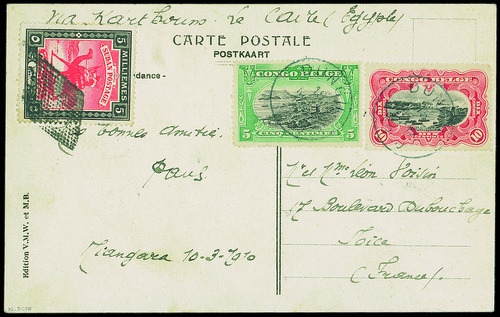 Via Karthoum. Le Caire (Egypte)
CARTE POSTALE
POSTKAART
5 MILLIEMES 5
SUDAN POSTAGE
dance -
CONGO BELGE
5 CINQ CENTIMES 5
CONGO BELGE
DIX DIX
10 10
bonnes amitiés.
Paul
Niangara 10-3-910
Mr et Mme Léon Voisin
17 Boulevard Dubouchage
Nice
(France).
Edition V.M.W. et M.B.